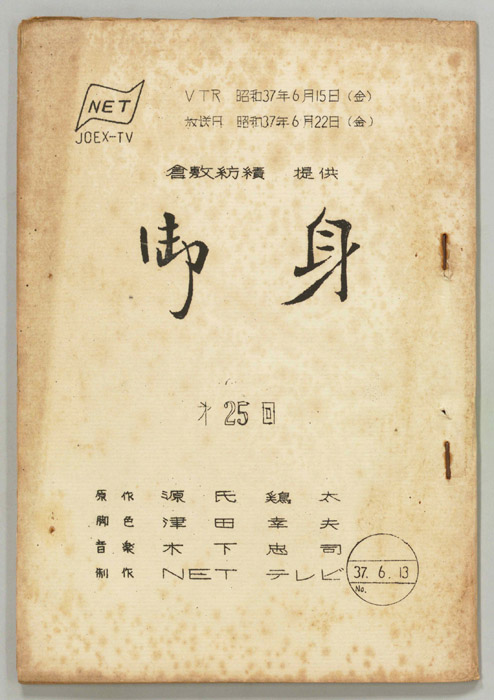 NET
JOEX-TV
VTR 昭和37年6月15日（金）
放送日 昭和37年6月22日（金）
倉敷紡績 提供
御身
才25回
原作 源氏鶏太
脚色 津田幸夫
音楽 木下忠司
制作 NETテレビ
37. 6. 13
No.